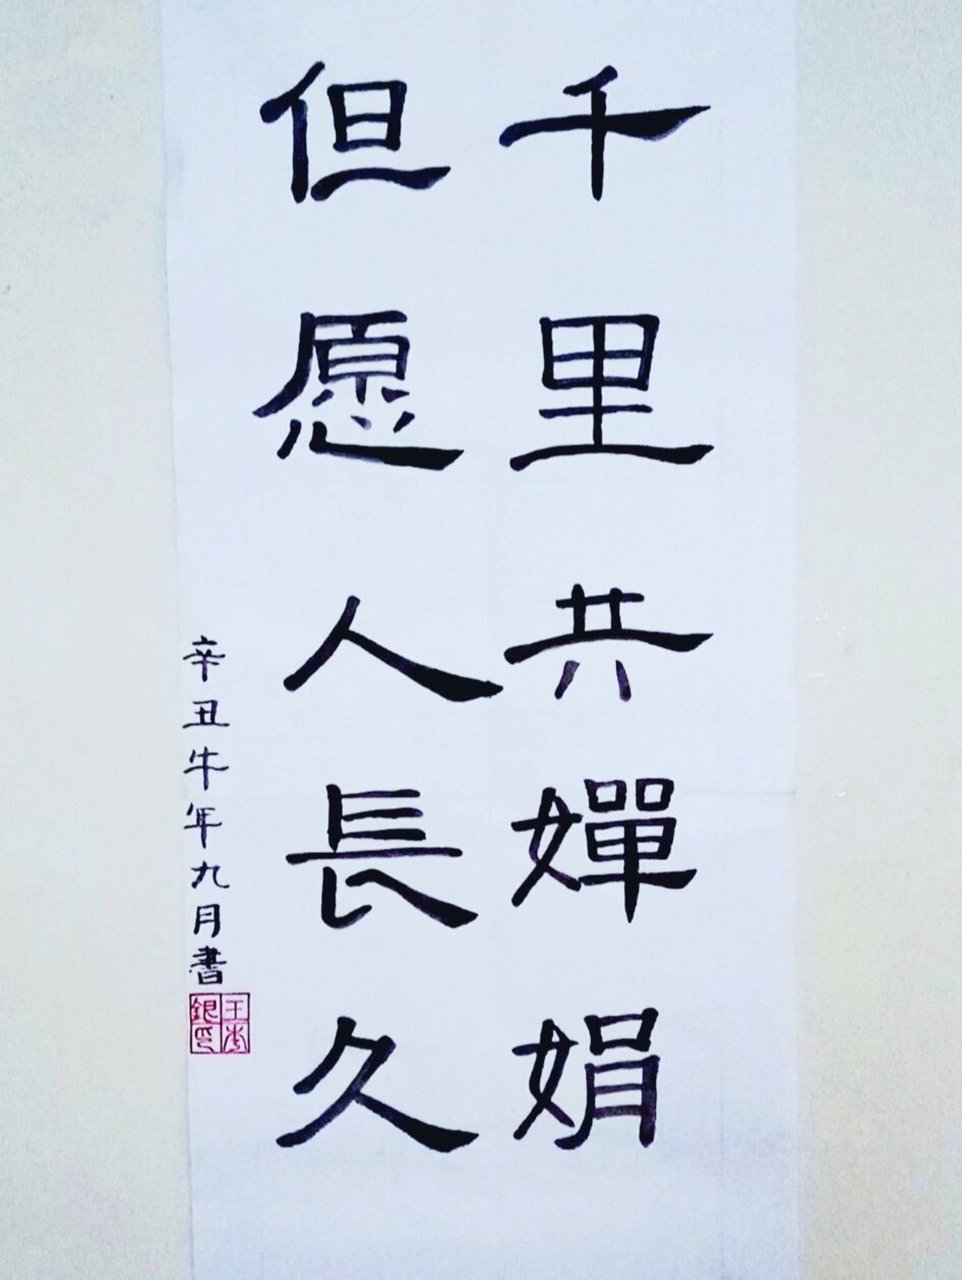 千里共嬋娟
但愿人長久
辛丑牛年九月書
王
銀印